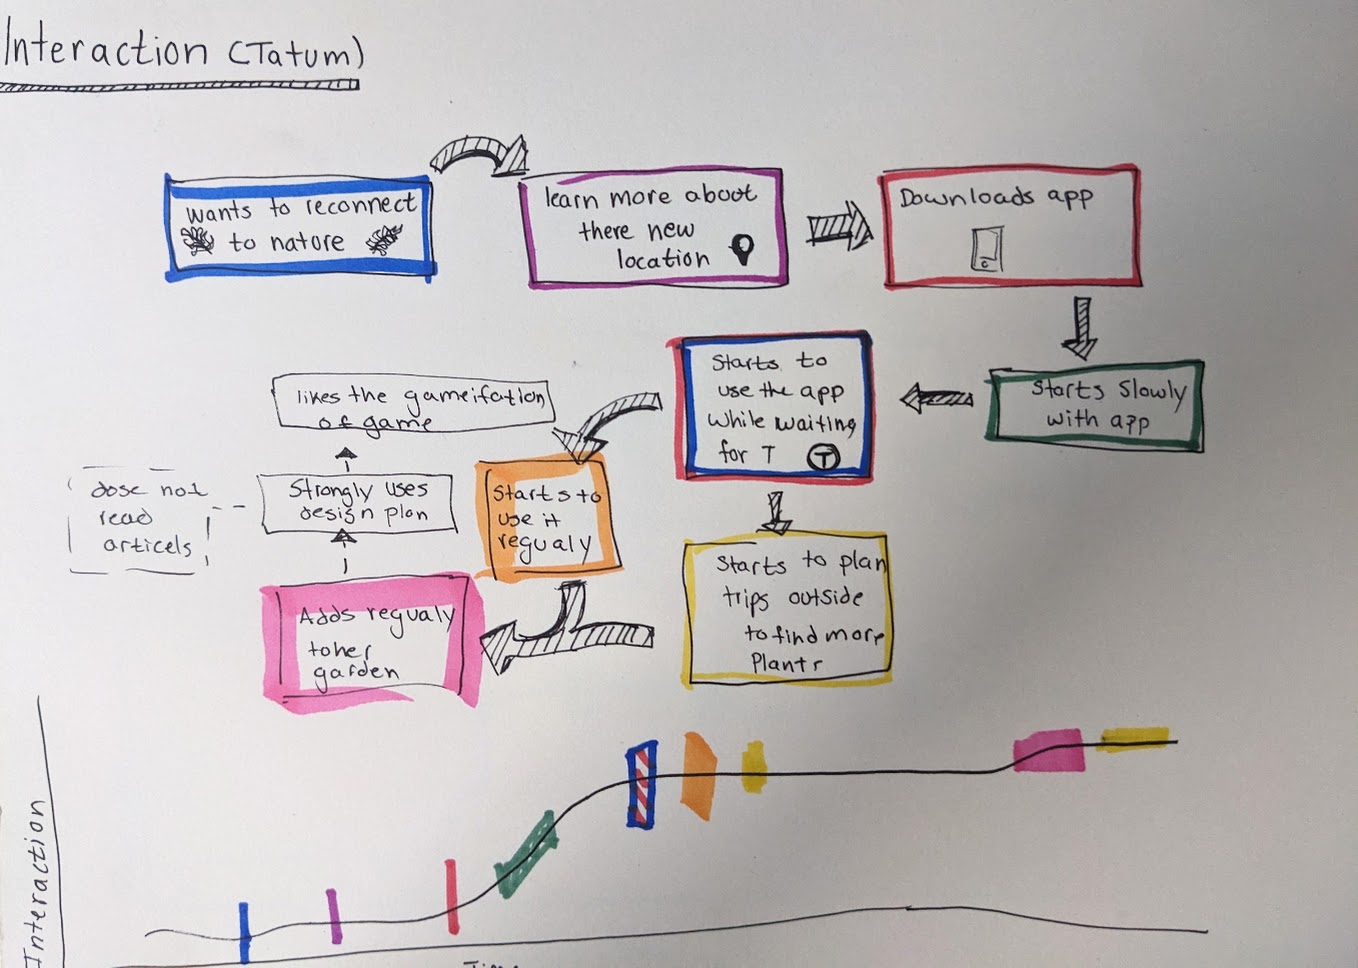 Interaction (Tatum)
wants to reconnect
to nature
learn more aboot
there new
location
Downloads app
Starts Slowly
with app
Starts to
use the app
While waiting
for T
T
likes the gameifation
of game
Strongly uses
design plan
dose not
read
articels
Starts to
use it
regualy
Starts to plan
trips outside
to find more
Plants
Adds regualy
to her
garden
Interaction
Time